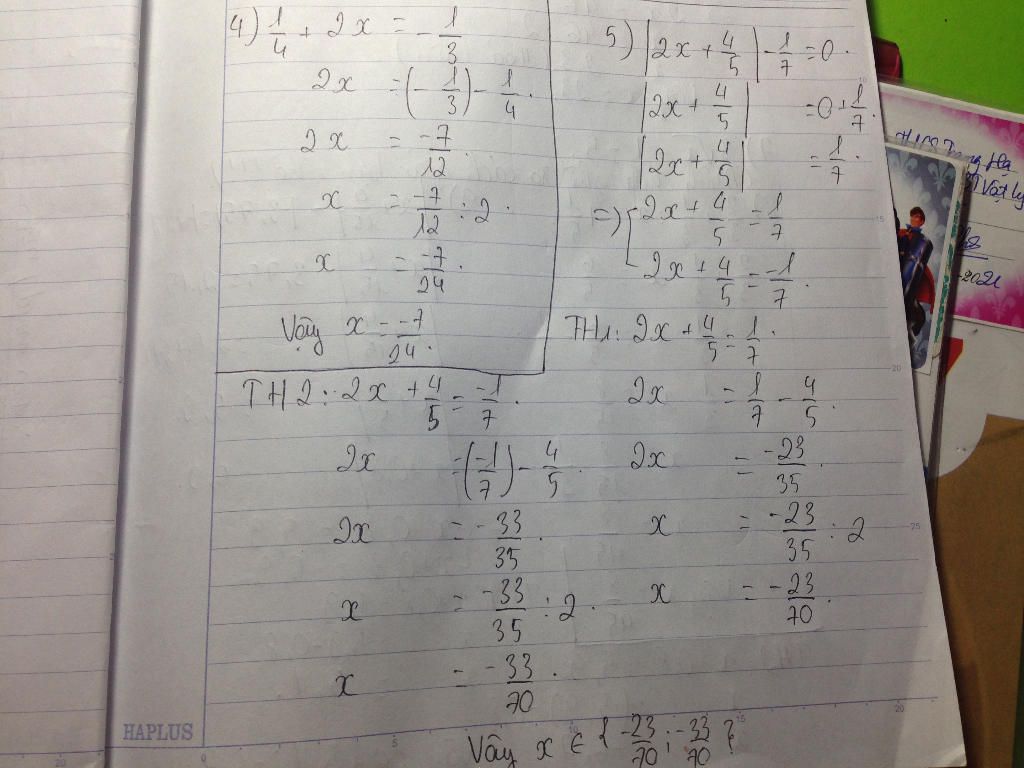 4) 1/4 + 2x = - 1/3
2x = (- 1/3) - 1/4.
2x = -7/12.
x = -7/12 : 2.
x = -7/24.
Vậy x = -7/24.
5) |2x + 4/5| - 1/7 = 0.
|2x + 4/5| = 0 + 1/7.
|2x + 4/5| = 1/7.
=> [ 2x + 4/5 = 1/7
2x + 4/5 = -1/7.
TH1: 2x + 4/5 = 1/7.
2x = 1/7 - 4/5.
2x = -23/35.
x = -23/35 : 2
x = -23/70.
TH2: 2x + 4/5 = -1/7.
2x = (-1/7) - 4/5.
2x = -33/35.
x = -33/35 : 2.
x = -33/70.
Vậy x ∈ { -23/70 ; -33/70 }
HAPLUS
Vật lý
2021